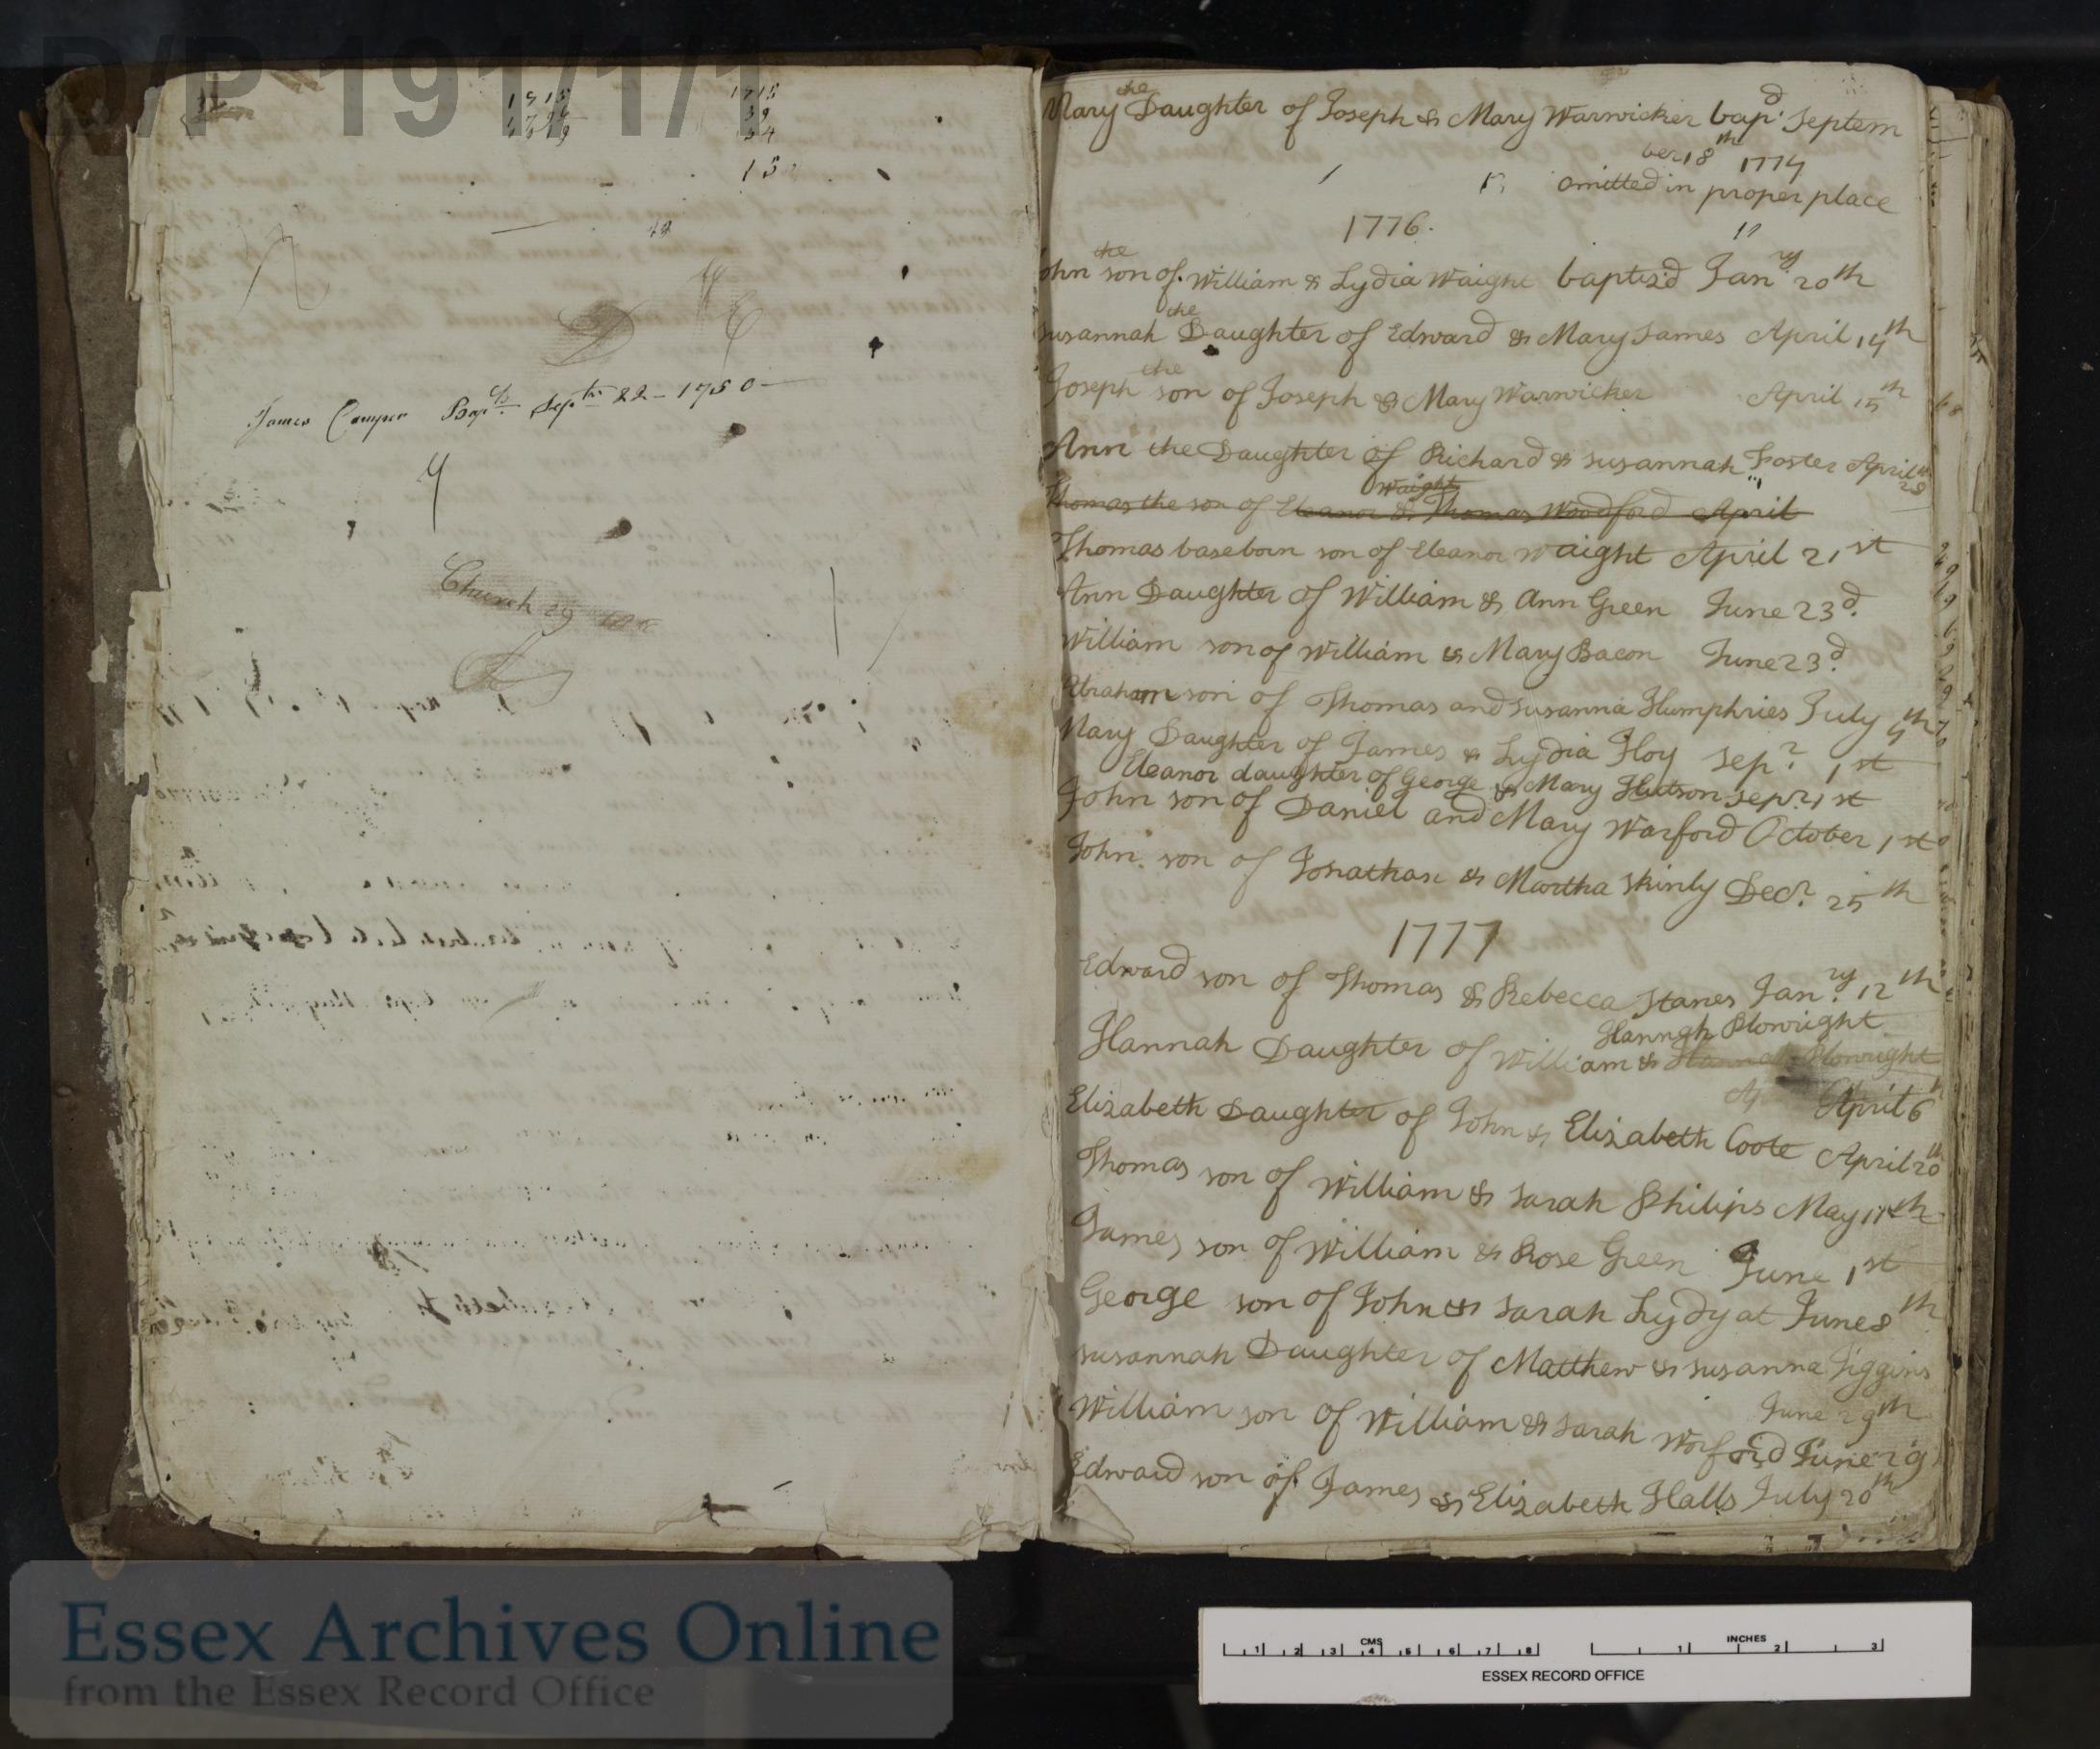 D/P 191/1/1
James Camper Bap.d Sep.tr 22 - 1750 -
Church 29
Mary the Daughter of Joseph & Mary Warwicker bap.d Septem
ber 18th 1774
omitted in proper place
1776.
John the son of William & Lydia Waight baptis'd Jan.ry 20th
Susannah the Daughter of Edward & Mary James April 14th
Joseph the son of Joseph & Mary Warwicker April 15th
Ann the Daughter of Richard & Susannah Foster April 28
Waight
Thomas the son of Eleanor & Thomas Woodford April
Thomas baseborn son of Eleanor Waight April 21st
Ann Daughter of William & Ann Green June 23d.
William son of William & Mary Bacon June 23d.
Abraham son of Thomas and Susanna Humphries July 4th
Mary Daughter of James & Lydia Hoy Sepr. 1st
Eleanor daughter of George & Mary Hutson Sepr. 1st
John son of Daniel and Mary Warford October 1st
John son of Jonathan & Martha Skinly Decr. 25th
1777
Edward son of Thomas & Rebecca Stanes Jan.ry 12th
Hannah Plowright
Hannah Daughter of William & Hannah Plowright
April 6
Elizabeth Daughter of John & Elizabeth Coote April 20th
Thomas son of William & Sarah Philips May 11th
James son of William & Rose Green June 1st
George son of John & Sarah Lydyat June 8th
Susannah Daughter of Matthew & Susanna Jiggins
June 29th
William son of William & Sarah Worford June 29
Edward son of James & Elizabeth Halls July 20th
Essex Archives Online
from the Essex Record Office
CMS
1 2 3 4 5 6 7 8
INCHES
1 2 3
ESSEX RECORD OFFICE